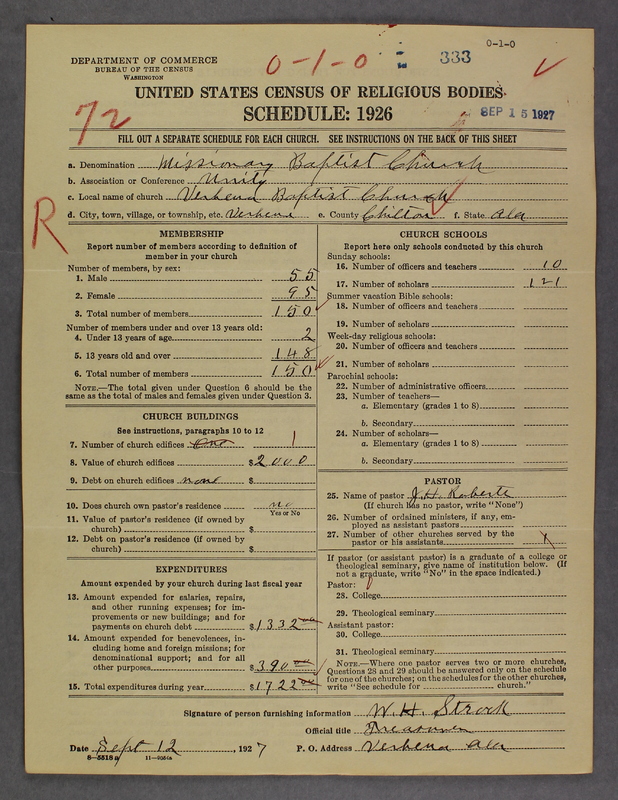 0-1-0
DEPARTMENT OF COMMERCE
BUREAU OF THE CENSUS
WASHINGTON
0-1-0 333
UNITED STATES CENSUS OF RELIGIOUS BODIES
72 SCHEDULE: 1926 SEP 15 1927
FILL OUT A SEPARATE SCHEDULE FOR EACH CHURCH. SEE INSTRUCTIONS ON THE BACK OF THIS SHEET
a. Denomination Missionary Baptist Church
b. Association or Conference Unity
c. Local name of church Verbena Baptist Church
d. City, town, village, or township, etc. Verbena e. County Chilton f. State Ala
R
MEMBERSHIP
Report number of members according to definition of
member in your church
Number of members, by sex:
1. Male 55
2. Female 95
3. Total number of members 150
Number of members under and over 13 years old:
4. Under 13 years of age 2
5. 13 years old and over 148
6. Total number of members 150
NOTE.—The total given under Question 6 should be the
same as the total of males and females given under Question 3.
CHURCH BUILDINGS
See instructions, paragraphs 10 to 12
7. Number of church edifices One 1
8. Value of church edifices $2000
9. Debt on church edifices none $
10. Does church own pastor's residence no
Yes or No
11. Value of pastor's residence (if owned by
church) $
12. Debt on pastor's residence (if owned by
church) $
EXPENDITURES
Amount expended by your church during last fiscal year
13. Amount expended for salaries, repairs,
and other running expenses; for im-
provements or new buildings; and for
payments on church debt $1332 00
14. Amount expended for benevolences, in-
cluding home and foreign missions; for
denominational support; and for all
other purposes $390 00
15. Total expenditures during year $1722 00
CHURCH SCHOOLS
Report here only schools conducted by this church
Sunday schools:
16. Number of officers and teachers 10
17. Number of scholars 121
Summer vacation Bible schools:
18. Number of officers and teachers
19. Number of scholars
Week-day religious schools:
20. Number of officers and teachers
21. Number of scholars
Parochial schools:
22. Number of administrative officers
23. Number of teachers—
a. Elementary (grades 1 to 8)
b. Secondary
24. Number of scholars—
a. Elementary (grades 1 to 8)
b. Secondary
PASTOR
25. Name of pastor J. H. Roberts
(If church has no pastor, write "None")
26. Number of ordained ministers, if any, em-
ployed as assistant pastors
27. Number of other churches served by the
pastor or his assistants
If pastor (or assistant pastor) is a graduate of a college or
theological seminary, give name of institution below. (If
not a graduate, write "No" in the space indicated.)
Pastor:
28. College
29. Theological seminary
Assistant pastor:
30. College
31. Theological seminary
NOTE.—Where one pastor serves two or more churches,
Questions 28 and 29 should be answered only on the schedule
for one of the churches; on the schedules for the other churches,
write "See schedule for church."
Signature of person furnishing information W. H. Strock
Official title Treasurer
Date Sept 12, 1927 P. O. Address Verbena Ala
8-5518a 11-9054a